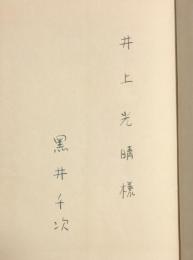 井上光晴様
黒井千次